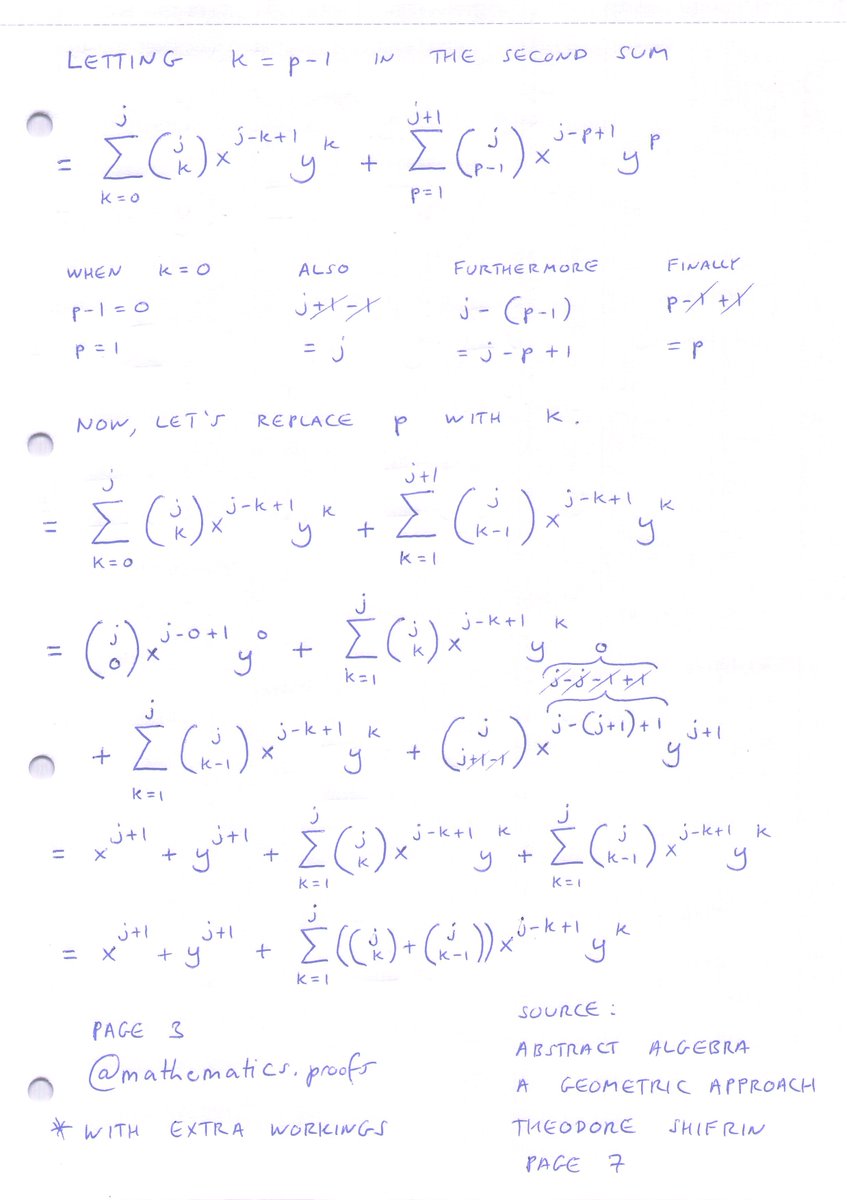 LETTING k = p-1 IN THE SECOND SUM
= \sum_{k=0}^{j} \binom{j}{k} x^{j-k+1} y^{k} + \sum_{p=1}^{j+1} \binom{j}{p-1} x^{j-p+1} y^{p}
WHEN k=0 ALSO FURTHERMORE FINALLY
p-1=0 j+1-1 j-(p-1) p-1+1
p=1 = j = j-p+1 = p
NOW, LET'S REPLACE p WITH k.
= \sum_{k=0}^{j} \binom{j}{k} x^{j-k+1} y^{k} + \sum_{k=1}^{j+1} \binom{j}{k-1} x^{j-k+1} y^{k}
= \binom{j}{0} x^{j-0+1} y^{0} + \sum_{k=1}^{j} \binom{j}{k} x^{j-k+1} y^{k}
0
j-j-1+1
+ \sum_{k=1}^{j} \binom{j}{k-1} x^{j-k+1} y^{k} + \binom{j}{j+1-1} x^{j-(j+1)+1} y^{j+1}
= x^{j+1} + y^{j+1} + \sum_{k=1}^{j} \binom{j}{k} x^{j-k+1} y^{k} + \sum_{k=1}^{j} \binom{j}{k-1} x^{j-k+1} y^{k}
= x^{j+1} + y^{j+1} + \sum_{k=1}^{j} (\binom{j}{k} + \binom{j}{k-1}) x^{j-k+1} y^{k}
PAGE 3
@mathematics.proofs
* WITH EXTRA WORKINGS
SOURCE:
ABSTRACT ALGEBRA
A GEOMETRIC APPROACH
THEODORE SHIFRIN
PAGE 7